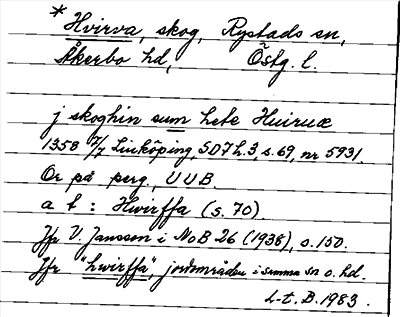 * Hvirva, skog, Rystads sn,
Åkerbo hd, Östg. l.
j skoghin sum hete Huiruæ
1358 7/7 Linköping, SD 7 h. 3, s. 69, nr 5931.
Or på perg., UUB.
a t : Hwirffa (s. 70).
Jfr V. Jansson i NoB 26 (1938), s. 150.
Jfr "hwirffa", jordområden i samma sn o. hd.
L-t. B. 1983.